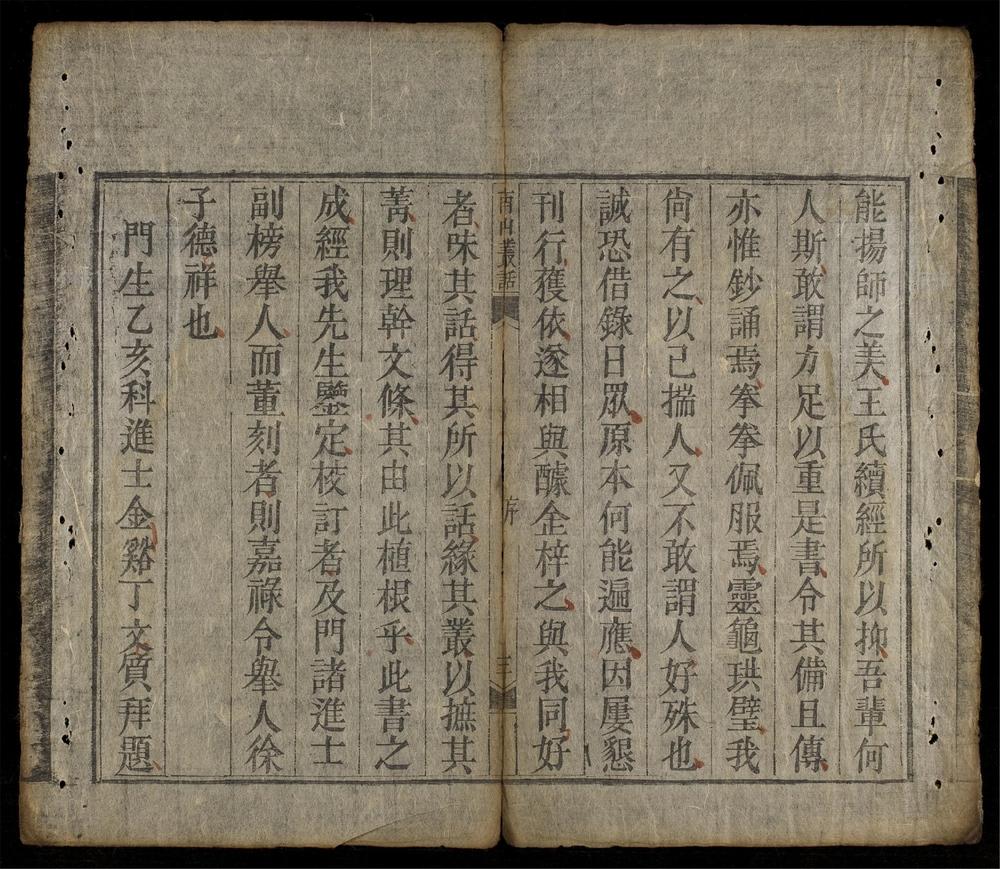 能揚師之美王氏續經所以抑吾輩何
人斯敢謂方足以重是書令其備且傳
亦惟鈔誦焉拳拳佩服焉靈龜珙璧我
尙有之以已揣人又不敢謂人好殊也
誠恐借錄日眾原本何能遍應因屢懇
刊行獲依遂相與醵金梓之與我同好
叢話
序
三
者味其話得其所以話緣其叢以摭其
菁則理幹文條其由此植根乎此書之
成經我先生鑒定校訂者及門諸進士
副榜舉人而董刻者則嘉祿令舉人徐
子德祥也
門生乙亥科進士金谿丁文質拜題